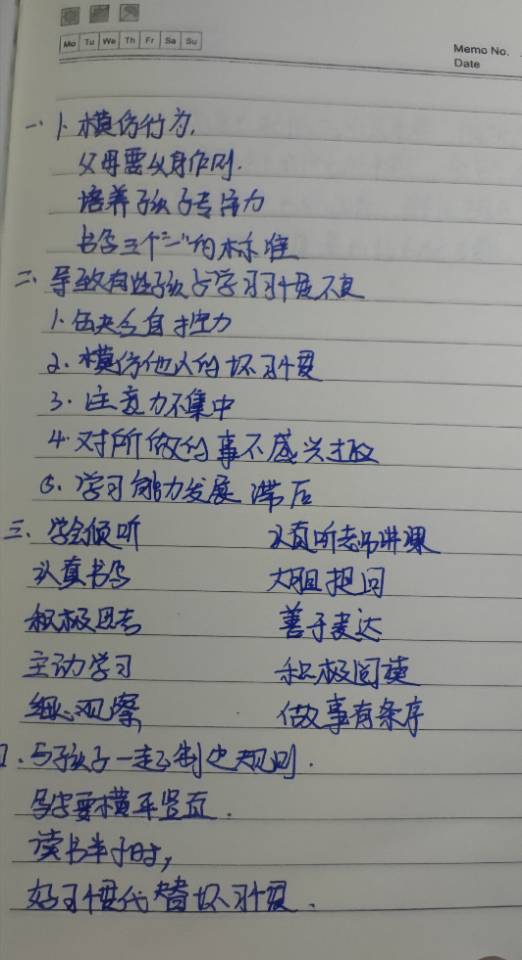 Mo Tu We Th Fr Sa Su
Memo No.
Date
一、1、模仿行为.
父母要以身作则.
培养孩子专注力
书写三个"一"的标准
二、导致有些孩子学习习惯不良
1.缺乏自控力
2.模仿他人的坏习惯
3.注意力不集中
4.对所做的事不感兴趣
5.学习能力发展滞后
三、学会倾听 认真听老师讲课
认真书写 大胆提问
积极思考 善于表达
主动学习 积极阅读
细心观察 做事有条序
、与孩子一起制定规则.
写字要横平竖直.
读书半小时,
好习惯代替坏习惯.